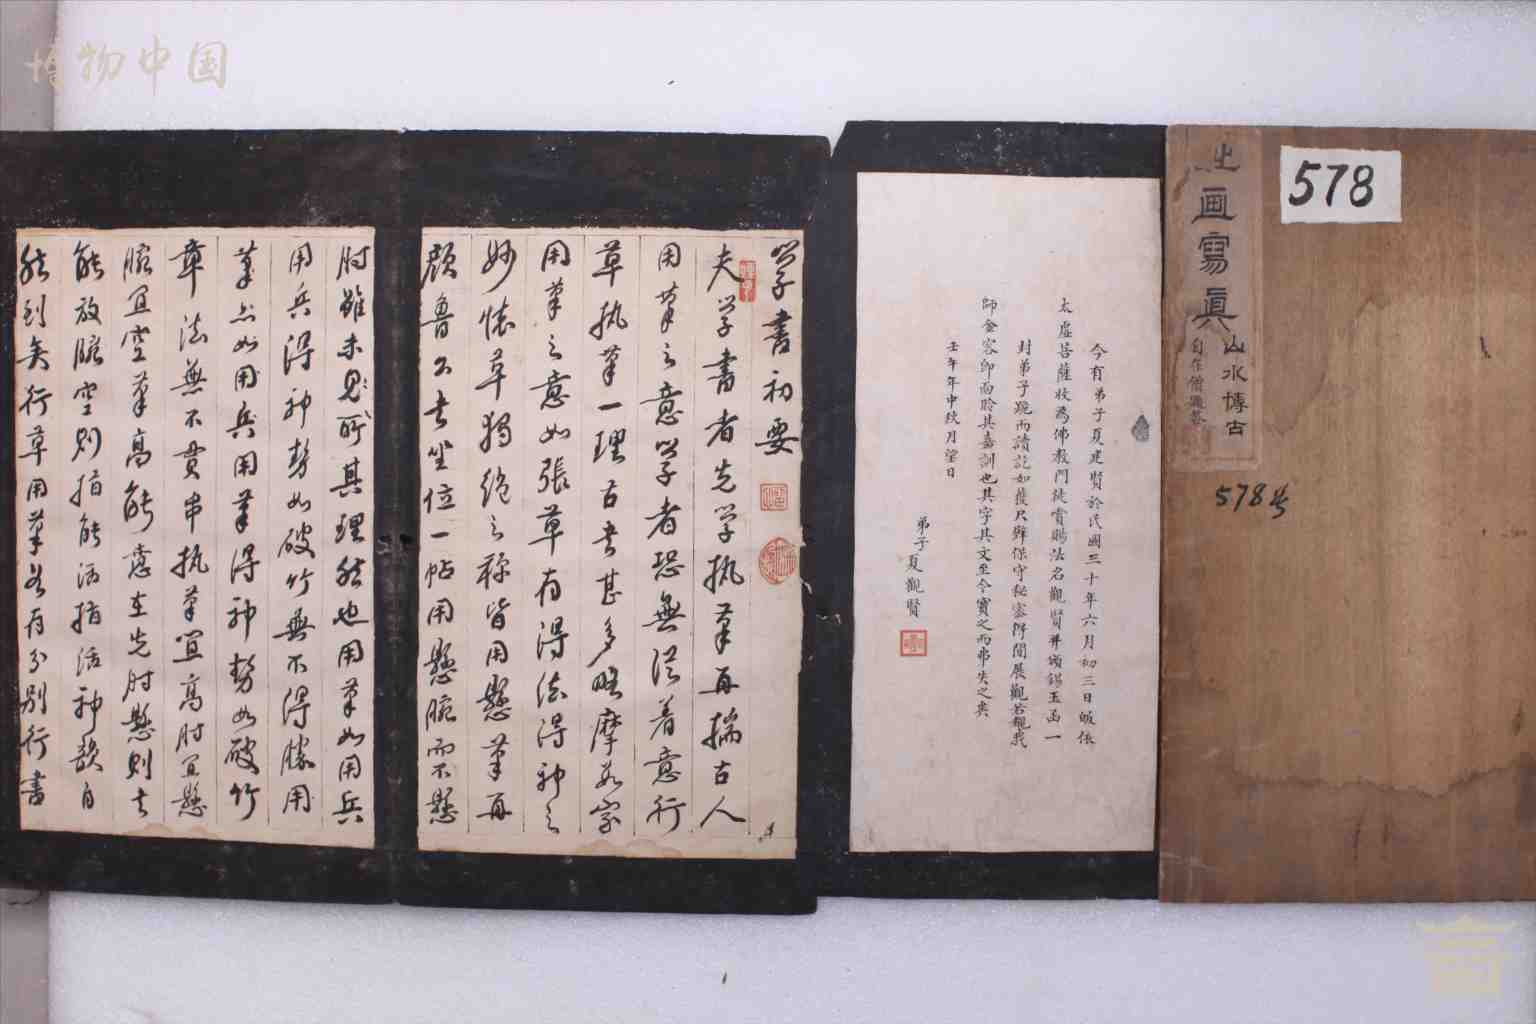 博物中国
画寫真
山水博古
578
578号
今有弟子夏建賢於民國三十年六月初三日皈依
太虛菩薩收為佛教門徒賞賜法名觀賢并頒錫玉函一
封弟子跪而讀訖如獲尺璧保守秘密得閒展觀若覩我
師金容即而聆其嘉訓也其字其文至今寶之而弗失之矣
壬午年中秋月望日
弟子夏觀賢
學書初要
夫學書者先學執筆再揣古人
用筆之意學者恐無從着意行
草執筆一理古書甚多略摩名家
用筆之意如張草有得法得神之
妙懷草獨絕之稱皆用懸筆再
顏魯公書坐位一帖用懸腕而不懸
肘雖未見所其理然也用筆如用兵
用兵得神勢如破竹無不得勝用
筆亦如用兵用筆得神勢如破竹
章法無不貫串執筆宜高肘宜懸
腕宜空筆高能意在先肘懸則書
能放腕空則指能活指活神韻自
然到矣行草用筆各有分別行書